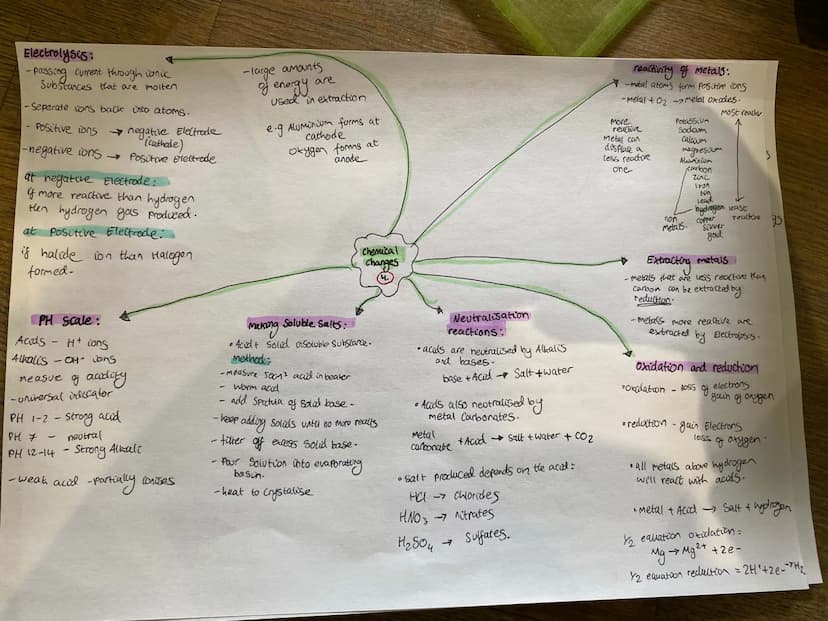 Electrolysis:
- passing current through ionic
substances that are molten
- seperate ions back into atoms.
- Positive ions → negative Electrode
(cathode)
- negative ions → Positive Electrode
At negative Electrode:
if more reactive than hydrogen
then hydrogen gas produced.
at Positive Electrode:
if halide ion than Halogen
formed.
- large amounts
of energy are
used in extraction
e.g Aluminium forms at
cathode
oxygen forms at
anode
reactivity of metals:
- metal atoms form positive ions
- Metal + O2 → metal oxides.
More
reactive
Metal can
displace a
less reactive
one.
most reactive
Potassium
Sodium
calcium
magnesium
Aluminium
carbon
zinc
iron
tin
lead
hydrogen
copper
silver
gold
non
metals.
least
reactive
Chemical
changes
4.
Extracting metals
- metals that are less reactive than
carbon can be extracted by
reduction.
- metals more reactive are
extracted by Electrolysis.
PH Scale:
Acids - H+ ions
Alkalis - OH- ions
measure of acidity
- universal indicator
PH 1-2 - Strong acid
PH 7 - neutral
PH 12-14 - Strong Alkali
- weak acid - partially ionises
Making Soluble Salts:
• Acid + Solid
Method:
- measure acid in beaker
- warm acid
- add spatula of solid base.
- keep adding solids until no more reacts
- filter off excess solid base.
- Pour solution into evaporating
basin.
- heat to crystalise
Neutralisation
reactions:
• acids are neutralised by Alkalis
and bases.
base + Acid → Salt + water
• Acids also neutralised by
metal Carbonates.
Metal
carbonate + Acid → Salt + Water + CO2
• salt produced depends on the acid:
HCl → chlorides
HNO3 → nitrates
H2SO4 → Sulfates.
Oxidation and reduction
• Oxidation - loss of electrons
gain of oxygen
• reduction - gain Electrons
loss of oxygen.
• all metals above hydrogen
will react with acids.
• Metal + Acid → Salt + hydrogen
1/2 equation oxidation:
Mg → Mg2+ + 2e-
1/2 equation reduction = 2H+ + 2e- → H2